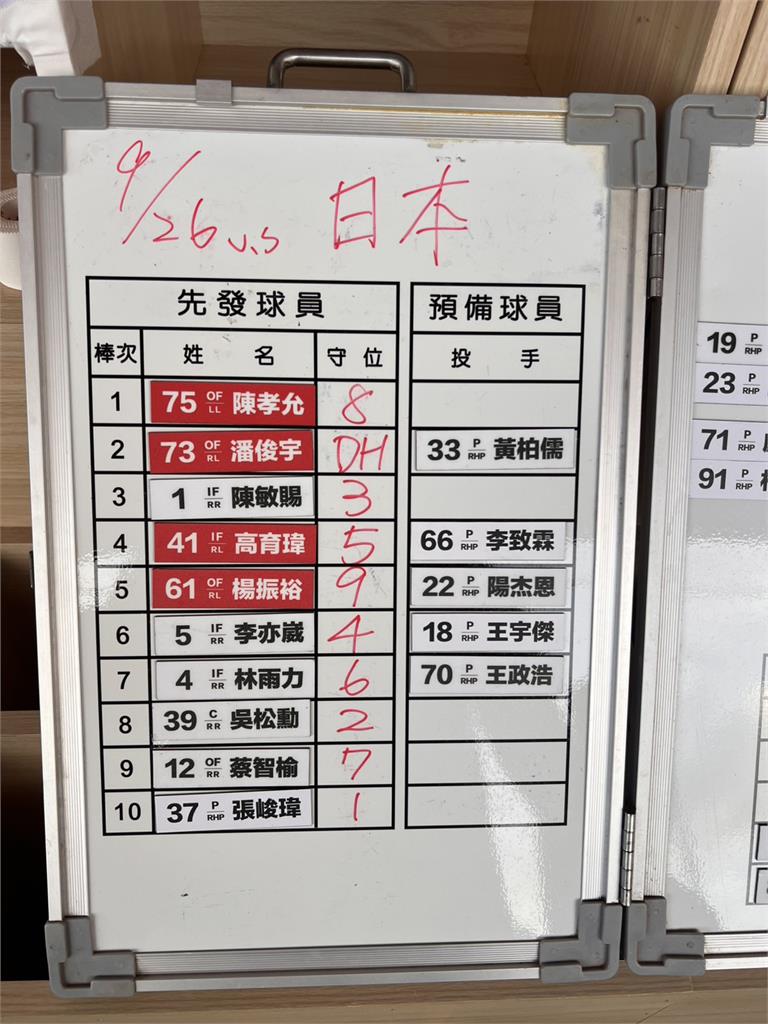 9/26 v.s 日本
先發球員 預備球員
棒次 姓名 守位 投手
1 75 OF/LL 陳孝允 8
2 73 OF/RL 潘俊宇 DH 33 P/RHP 黃柏儒
3 1 IF/RR 陳敏賜 3
4 41 IF/RL 高育瑋 5 66 P/RHP 李致霖
5 61 OF/RL 楊振裕 9 22 P/RHP 陽杰恩
6 5 IF/RR 李亦崴 4 18 P/RHP 王宇傑
7 4 IF/RR 林雨力 6 70 P/RHP 王政浩
8 39 C/RR 吳松勳 2
9 12 OF/RR 蔡智榆 7
10 37 P/RHP 張峻瑋 1
19 P/RHP
23 P/RHP
71 P/RHP
91 P/RHP